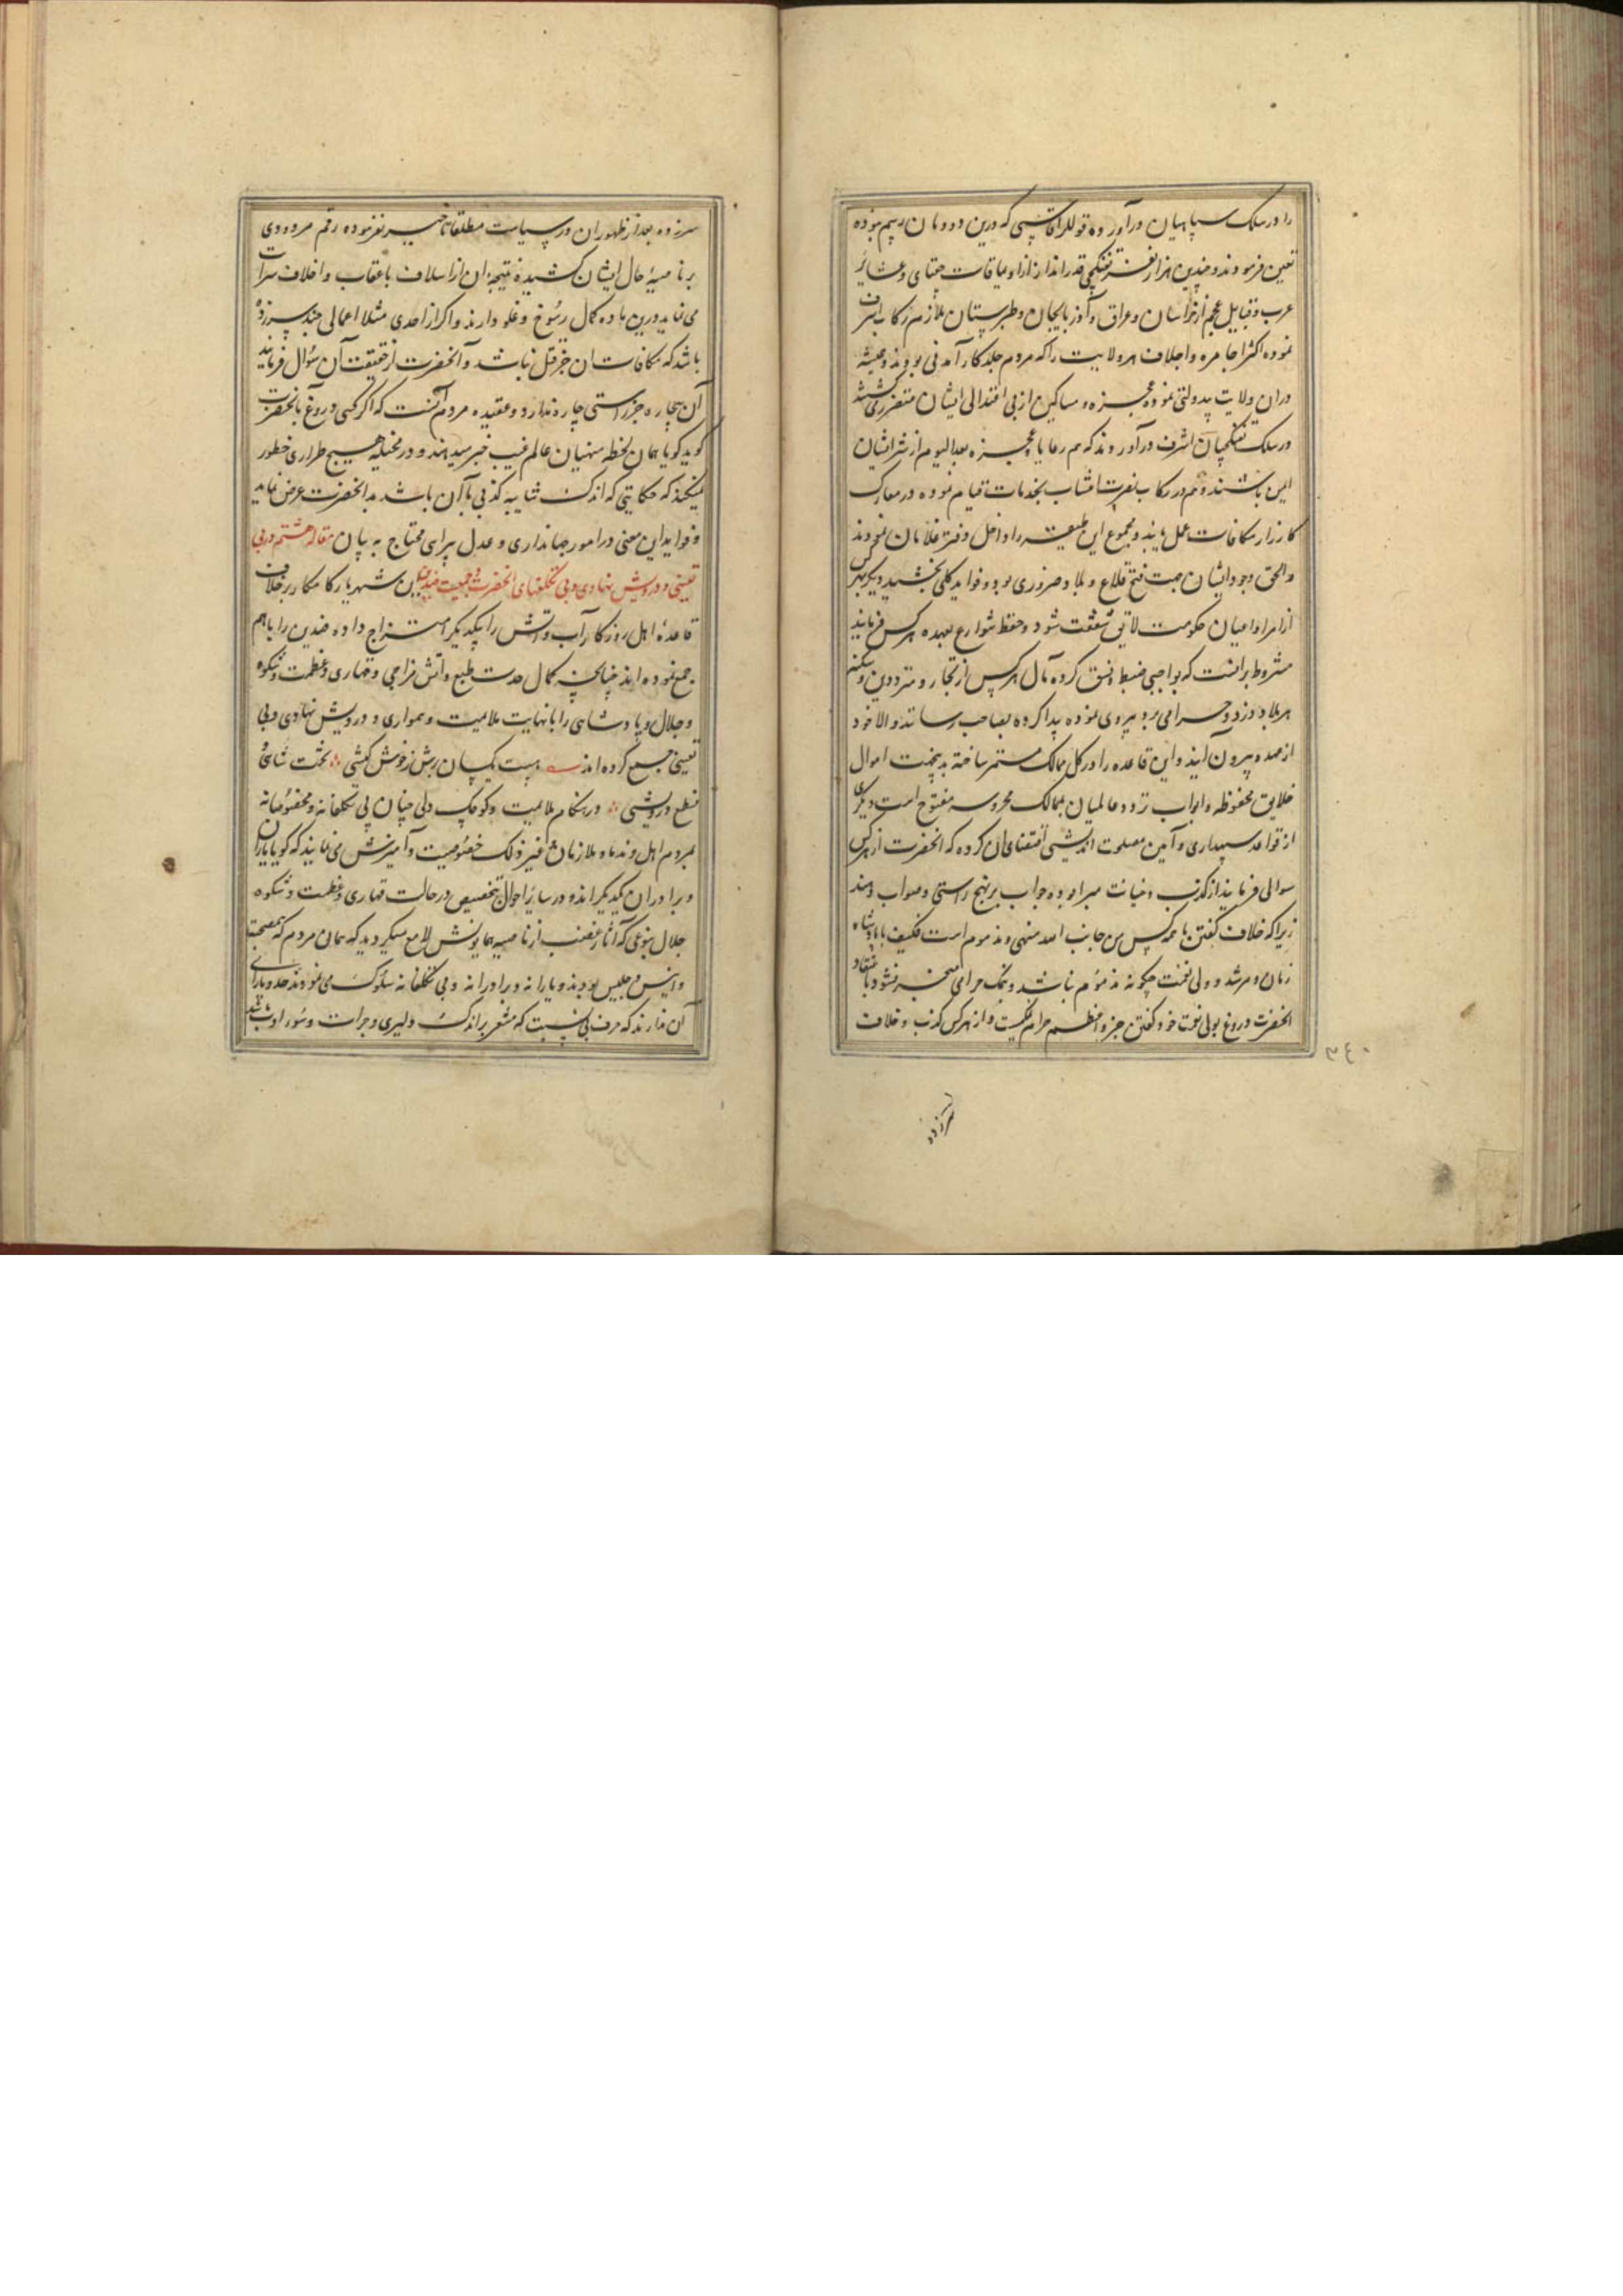 را در سلک سپاهیان در آورده قوللر آقاسی که درین دودمان رسم نبوده
تعین فرمودند و چندین هزار نفر تفنکچی قدرانداز از اویماقات جغتای و عشایر
عرب و قبایل عجم از خراسان و عراق و آذربایجان و طبرستان ملازم رکاب اشرف
نموده اکثر اجامره و اجلاف هر ولایت را که مردم جلد کار آمدنی بودند و همیشه
در ان ولایت بدولتی نموده عجزه و مساکین از بی اعتدالی ایشان متضرر می‌کشتند
در سلک تفنکچیان اشرف در آوردند که هم رعایا و عجزه بعد الیوم از شر ایشان
ایمن باشند و هم در رکاب نصرت انتساب بخدمات قیام نموده در معارک
کارزار مکافات عمل یابند و مجموع این طبقه را داخل دفتر غلامان نمودند
و الحق وجود ایشان جهت فتح قلاع و بلاد ضروری بود و فواید کلی بخشید دیکر بهرکس
از امرا و اعیان حکومت لایق شفقت شود و حفظ شوارع بعهده هر کس فرمایند
مشروط بر انست که بواجبی ضبط و نسق کرده مال هر کس از تجار و مترددین و سکنه
هر بلاد دزد و حرامی برد پیروی نموده پیدا کرده بصاحب رسانند و الا خود
از عهده بیرون آیند و این قاعده را در کل ممالک مستمر ساخته بدینجهت اموال
خلایق محفوظ و ابواب تردد عالمیان بممالک محروسه مفتوح است دیکری
از قواعد سپهداری و آیین مصلحت اندیشی اقتضای ان کرده که انحضرت از هر کس
سوالی فرمایند از کذب و خیانت مبرا بوده جواب بر نهج راستی و صواب دهند
زیرا که خلاف کفتن با همه کس من جانب الله منهی و مذموم است فکیف با پادشاه
زمان و مرشد و ولی نعمت چکونه مذموم نباشد و نمک حرامی منجر نشود باعتقاد
انحضرت دروغ بولی نعمت خود کفتن جزو اعظم حرام نمکیست و از هر کس کذب و خلاف
۳۴۰
سر زده
سر زده بعد از ظهور ان در سیاست مطلقا تاخیر نفرموده رقم مردودی
بر ناصیهٔ حال ایشان کشیده نتیجه ان از اسلاف باعقاب و اخلاف سرایت
می نماید درین ماده کمال رسوخ و غلو دارند و اکر از احدی مثلا اعمالی چند سر زده
باشد که مکافات ان جز قتل نباشد و آنحضرت از حقیقت آن سؤال فرمایند
آن بیچاره جز راستی چاره ندارد و عقیده مردم آنست که اکر کسی دروغ بانحضرت
کوید کویا همان لحظه منهیان عالم غیب خبر میدهند و در مخیله هیچ طراری خطور
نمیکند که حکایتی که اندک شایبه کذبی با آن باشد بدانحضرت عرض نماید
و فواید این معنی در امور جهانداری و عدل پیرایی محتاج به بیان مقاله هشتم در بی
تعینی و درویش نهادی و بی تکلفیهای انحضرت و جمعیت ضدین این شهریار کامکار بر خلاف
قاعدهٔ اهل روزکار آب و آتش را بیکدیکر امتزاج داده ضدین را با هم
جمع نموده اند چنانچه کمال حدت طبع و آتش مزاجی و قهاری و عظمت و شکوه
و جلال و پادشاهی را با نهایت ملایمت و همواری و درویش نهادی و بی
تعینی جمع کرده اند هست یکسان برش ز خوش کیشی تخت شاهی
نطع درویشی در هنکام ملایمت و کوچک دلی چنان بی تکلفانه و مخصوصانه
بمردم اهل و ندما و ملازمان و غیر ذلک خصوصیت و آمیزش می نمایند که کویا یاران
و برادران یکدیکراند و در سایر احوال بتخصیص در حالت قهاری و عظمت و شکوه
جلال بنوعی که آثار غضب از ناصیه همایونش لامع میکردید که همان مردم که مصاحب
و انیس و جلیس بودند و یارانه و برادرانه و بی تکلفانه سلوک می نمودند حد و یارای
آن ندارند که حرف بی نسبت که مشعر بر اندک دلیری و جرات و سوء ادب باشد